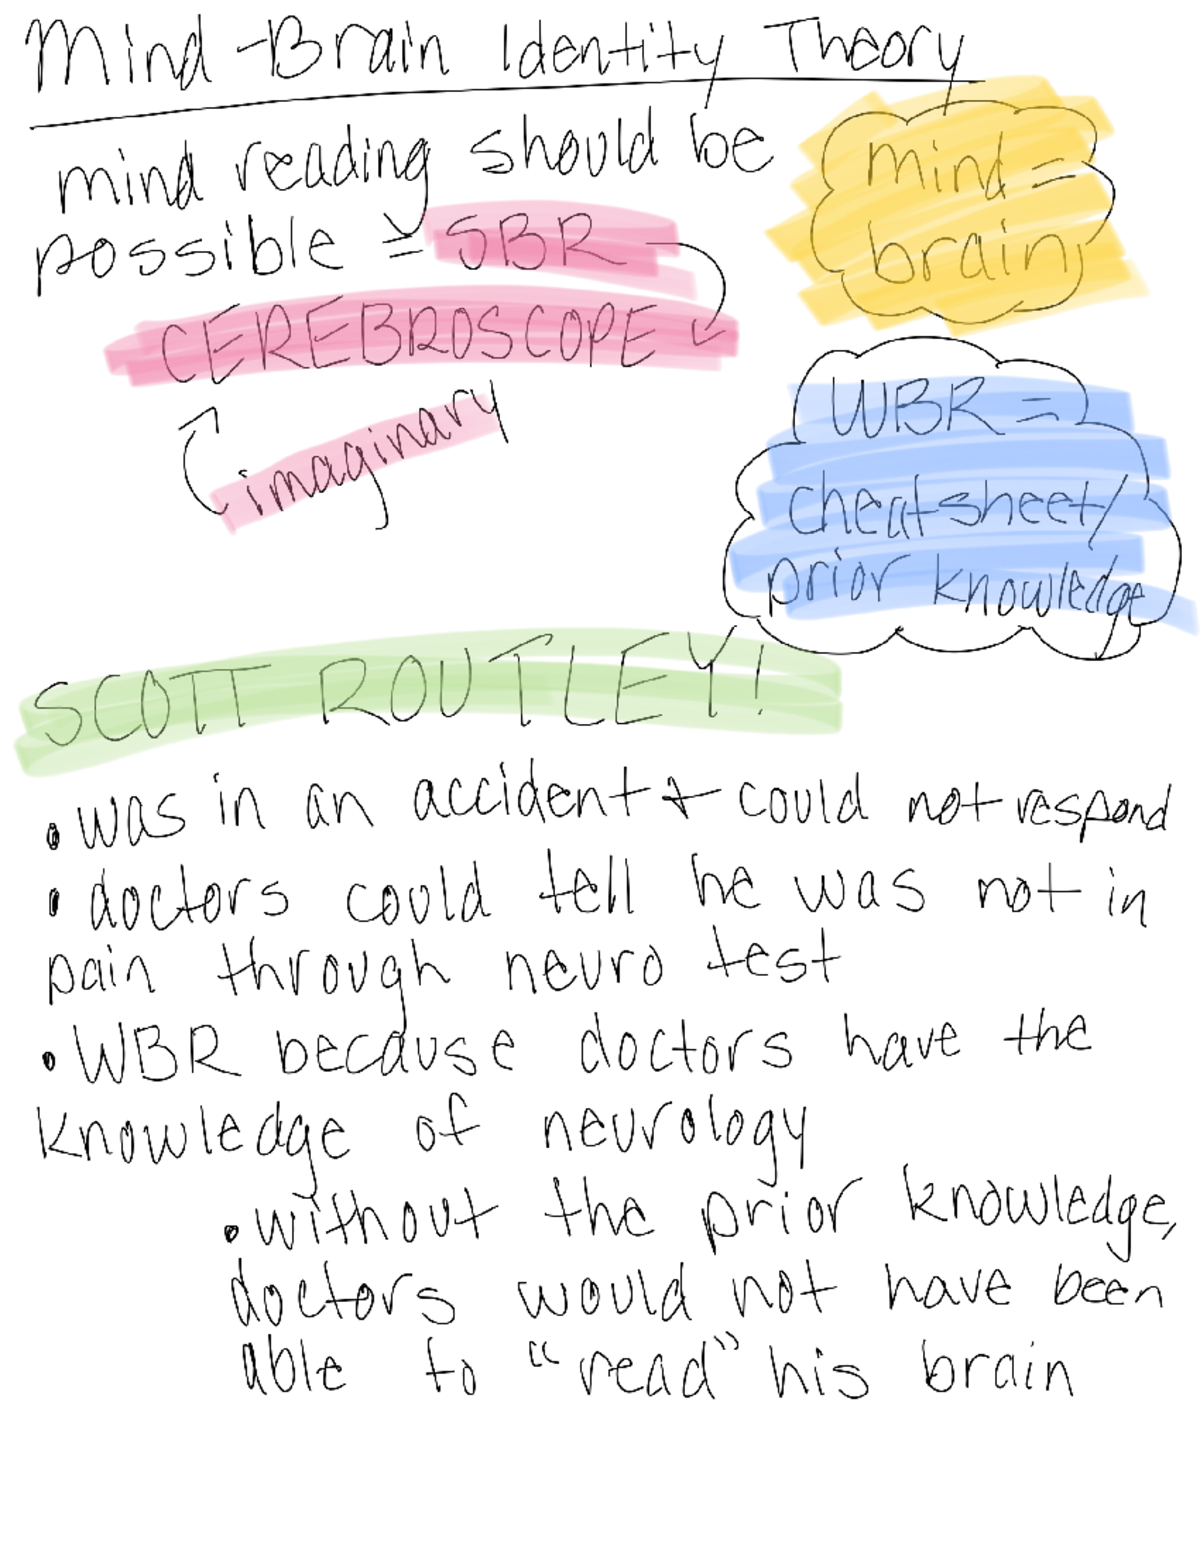 Mind-Brain Identity Theory
mind reading should be
possible SBR
CEREBROSCOPE
imaginary
mind =
brain
WBR =
cheatsheet/
prior knowledge
SCOTT ROUTLEY!
• was in an accident + could not respond
• doctors could tell he was not in
pain through neuro test
• WBR because doctors have the
knowledge of neurology
• without the prior knowledge,
doctors would not have been
able to "read" his brain